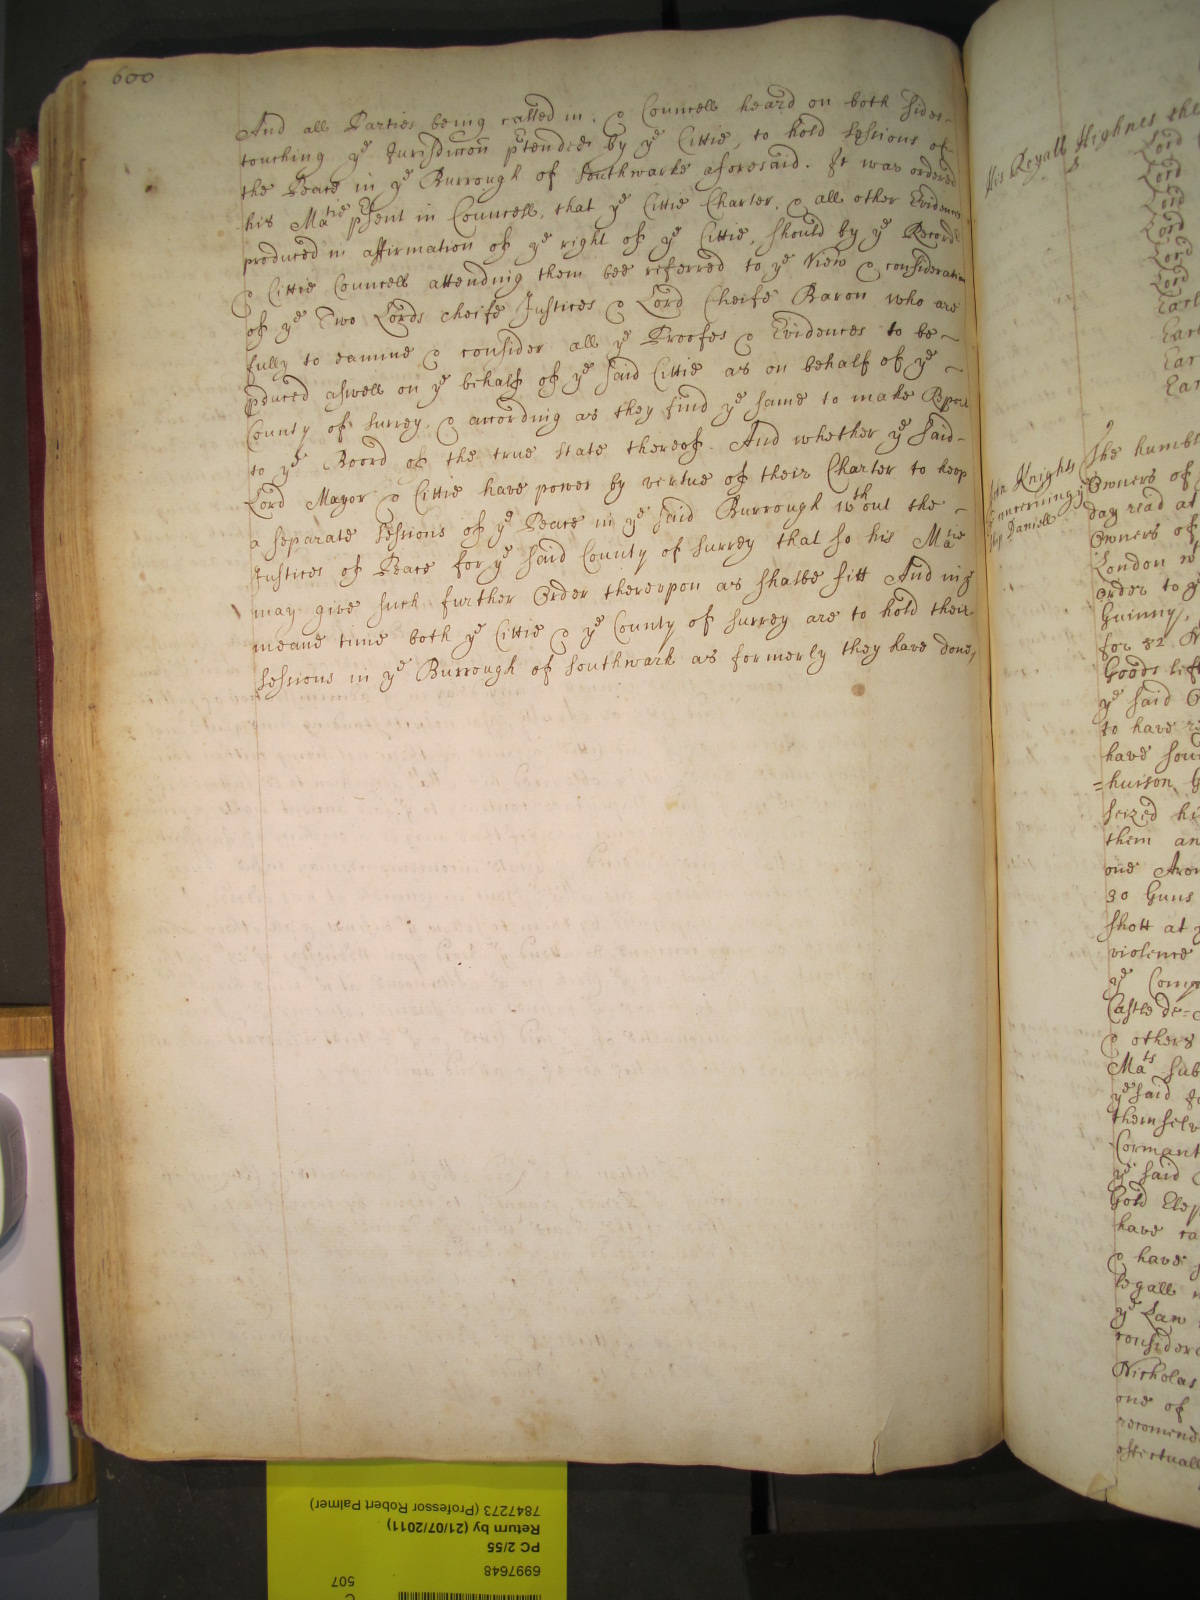 600
And all Parties being called in, & Councell heard on both sides
touching ye Jurisdiccon ptended by ye Cittie, to hold Sessions of
the Peace in ye Burrough of Southwarke aforesaid. It was ordered
his Matie psent in Councell, that ye Cittie Charter, & all other Evidences
produced in affirmation of ye right of ye Cittie, should by ye Recordr
& Cittie Councell attending them bee referred to ye View & consideration
of ye Two Lords cheife Justices & Lord Cheife Baron who are
fully to eamine & consider all ye Proofes & Evidences to be
pduced aswell on ye behalf of ye said Cittie as on behalf of ye
County of Surrey, & according as they find ye same to make Report
to ye Boord of the true state thereof. And whether ye said
Lord Mayor & Cittie have power by vertue of their Charter to keep
a separate Sessions of ye Peace in ye said Burrough wthout the
Justices of Peace for ye said County of Surrey that so his Matie
may give such further Order thereupon as shalbe fitt And in ye
meane time both ye Cittie & ye County of Surrey are to hold their
Sessions in ye Burrough of Southwark as formerly they have done,
His Royall Highnes the
Lord
Lord
Lord
Lord
Lord
Lord
Earl
Earl
Ear
Ear
Knights
Concerning ye
Ship Daniell
The humble
Owners of
day read at
Owners of
London
Order to
Guinny,
for 32
Goods
ye said
to have
have
=huison
seized hi
them an
one
30 Guns
shott at
violence
ye Comp
Castle de=
& others
Mats sub
ye said
themselv
Cormant
ye said
Gold Elep
have
& have
ye Law
considera
Nicholas
one of
recomend
effectuall
507
6997648
PC 2/55
Return by (21/07/2011)
7847273 (Professor Robert Palmer)